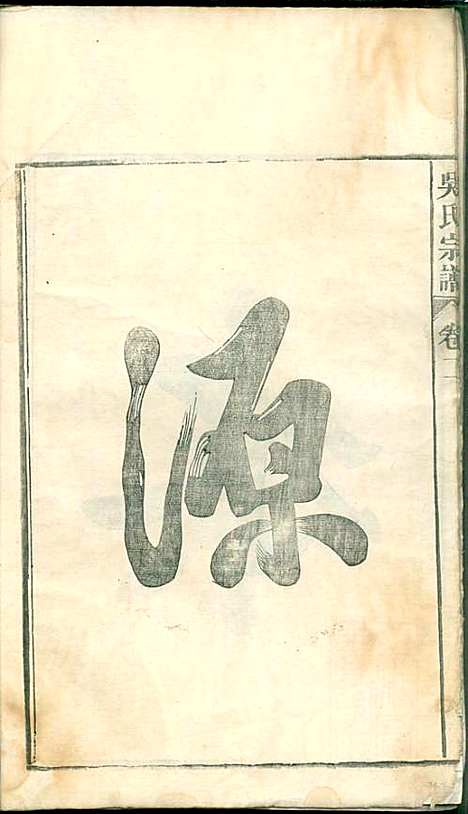 吳氏宗譜
卷二
源